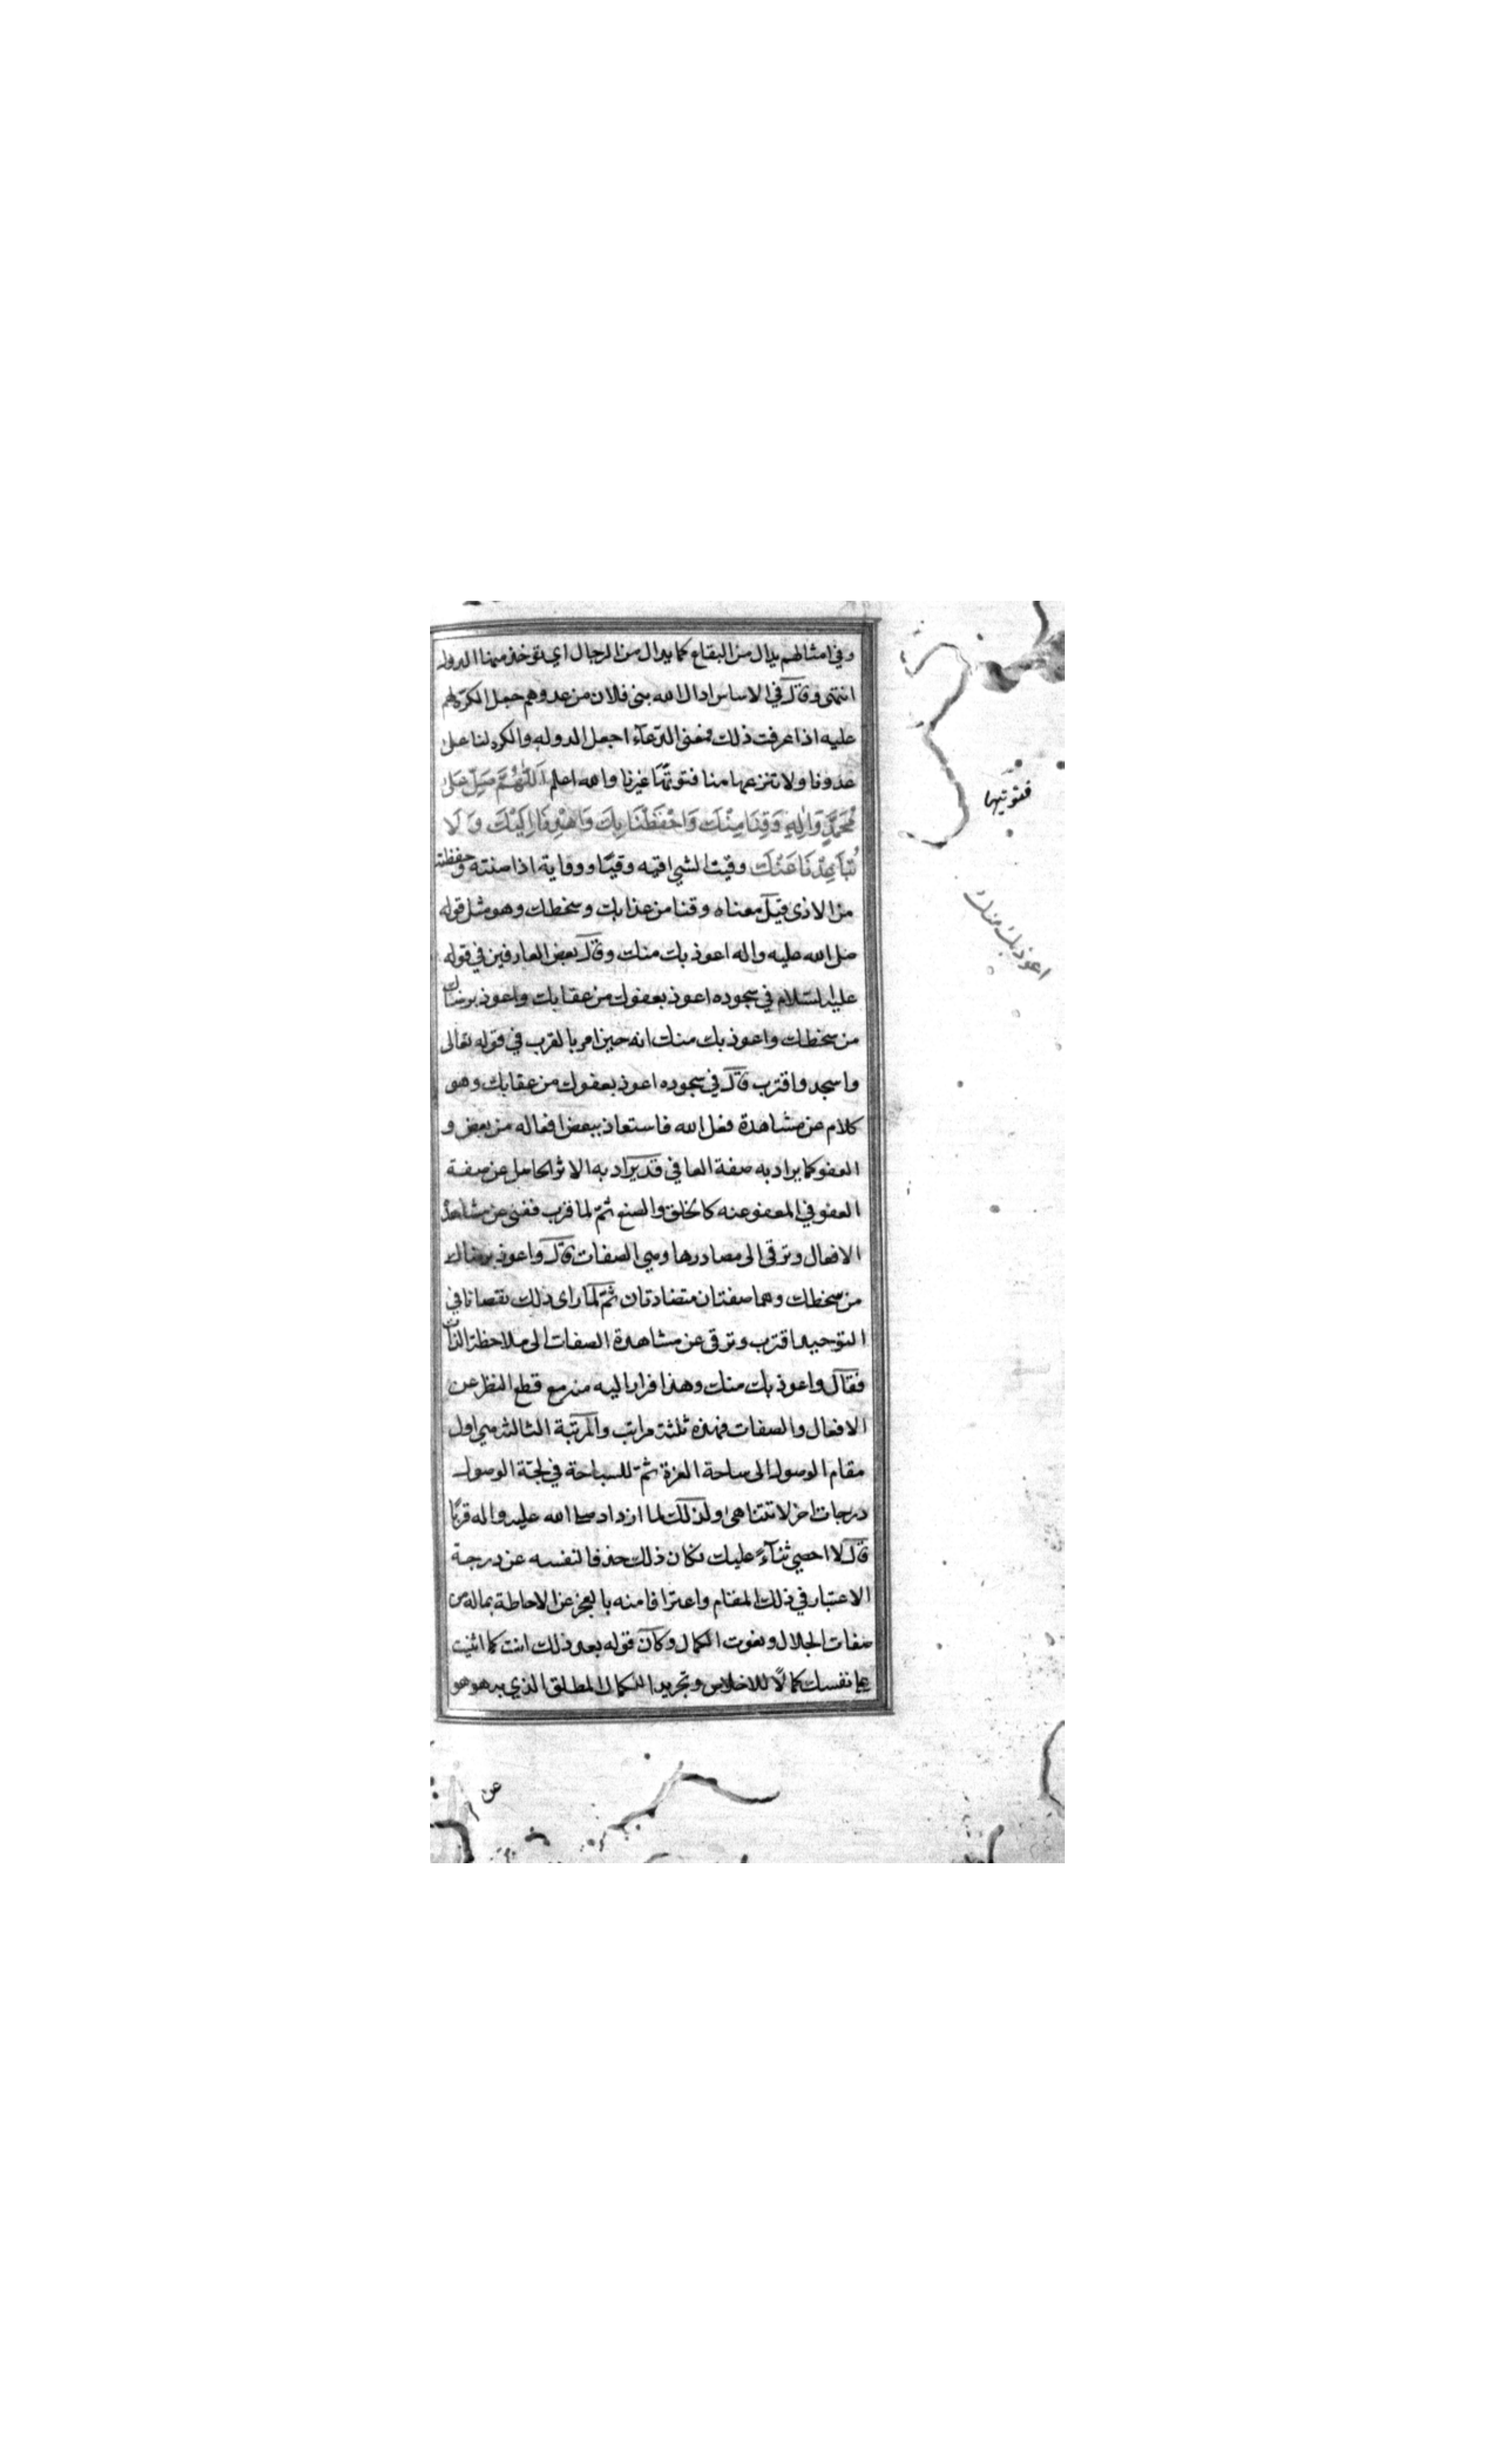 وفي امثالهم يدال من البقاع كما يدال من الرجال اي تؤخذ منها الدول
انتهى وقال في الاساس ادال الله بني فلان من عدوهم جعل الكرة لهم
عليه اذا عرفت ذلك فمعنى الدعآء اجعل الدولة والكره لنا على
عدونا ولا تنزعها منا فتوتها غيرنا والله اعلم اَللّٰهُمَّ صَلِّ عَلىٰ
مُحَمَّدٍ وَاٰلِهِ وَقِنَا مِنْكَ وَاحْفَظْنَا بِكَ وَاهْدِنَا اِلَيْكَ وَ لَا
تُبَاعِدْنَا عَنْكَ وقيت الشي اقيه وقيًا ووقاية اذا صنته وحفظته
من الاذى قيل معناه وقنا من عذابك وسخطك وهو مثل قوله
صلى الله عليه واله اعوذ بك منك وقال بعض العارفين في قوله
عليه السّلام في سجوده اعوذ بعفوك من عقابك واعوذ برضاك
من سخطك واعوذ بك منك انه حين امر بالقرب في قوله تعالى
واسجد واقترب قال في سجوده اعوذ بعفوك من عقابك وهو
كلام عن مشاهدة فعل الله فاستعاذ ببعض افعاله من بعض و
العفو كما يراد به صفة العافي قد يراد به الاثر الحاصل عن صفة
العفو في المعفو عنه كالخلق والصنع ثمّ لما قرب ففني عن مشاهدة
الافعال وترقى الى مصادرها وهي الصفات قال واعوذ برضاك
من سخطك وهما صفتان متضادتان ثمّ لمّا راى ذلك نقصانا في
التوحيد اقترب وترقى عن مشاهدة الصفات الى ملاحظة الذات
فقال واعوذ بك منك وهذا فرار اليه منه مع قطع النظر عن
الافعال والصفات فهذه ثلثة مراتب والمرتبة الثالثة هي اول
مقام الوصول الى ساحة العزة ثمّ للسباحة في لجّة الوصول
درجات اخر لا تتناهى ولذلك لما ازداد صلى الله عليه واله قربًا
قال لا احصي ثنآءً عليك فكان ذلك حذفا لنفسه عن درجة
الاعتبار في ذلك المقام واعترافا منه بالعجز عن الاحاطة بماله من
صفات الجلال ونعوت الكمال وكان قوله بعد ذلك انت كما اثنيت
على نفسك كمالًا للاخلاص وتجريد الكمال المطلق الذي به هو هو
فتؤتيها
اعوذ بك منك
عن